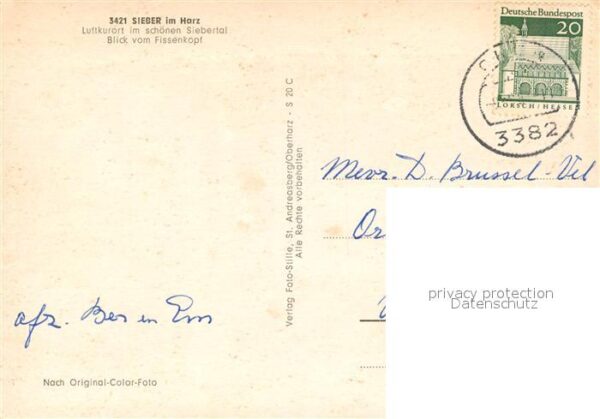 3421 SIEBER im Harz
Luftkurort im schönen Siebertal
Blick vom Fissenkopf
Deutsche Bundespost
20
LORSCH/HESSEN
3382
Verlag Foto-Stille, St. Andreasberg/Oberharz - S 20 C
Alle Rechte vorbehalten
Mevr. D. Brussel-Vel
Or
privacy protection
Datenschutz
afz. Ber en Em
Nach Original-Color-Foto